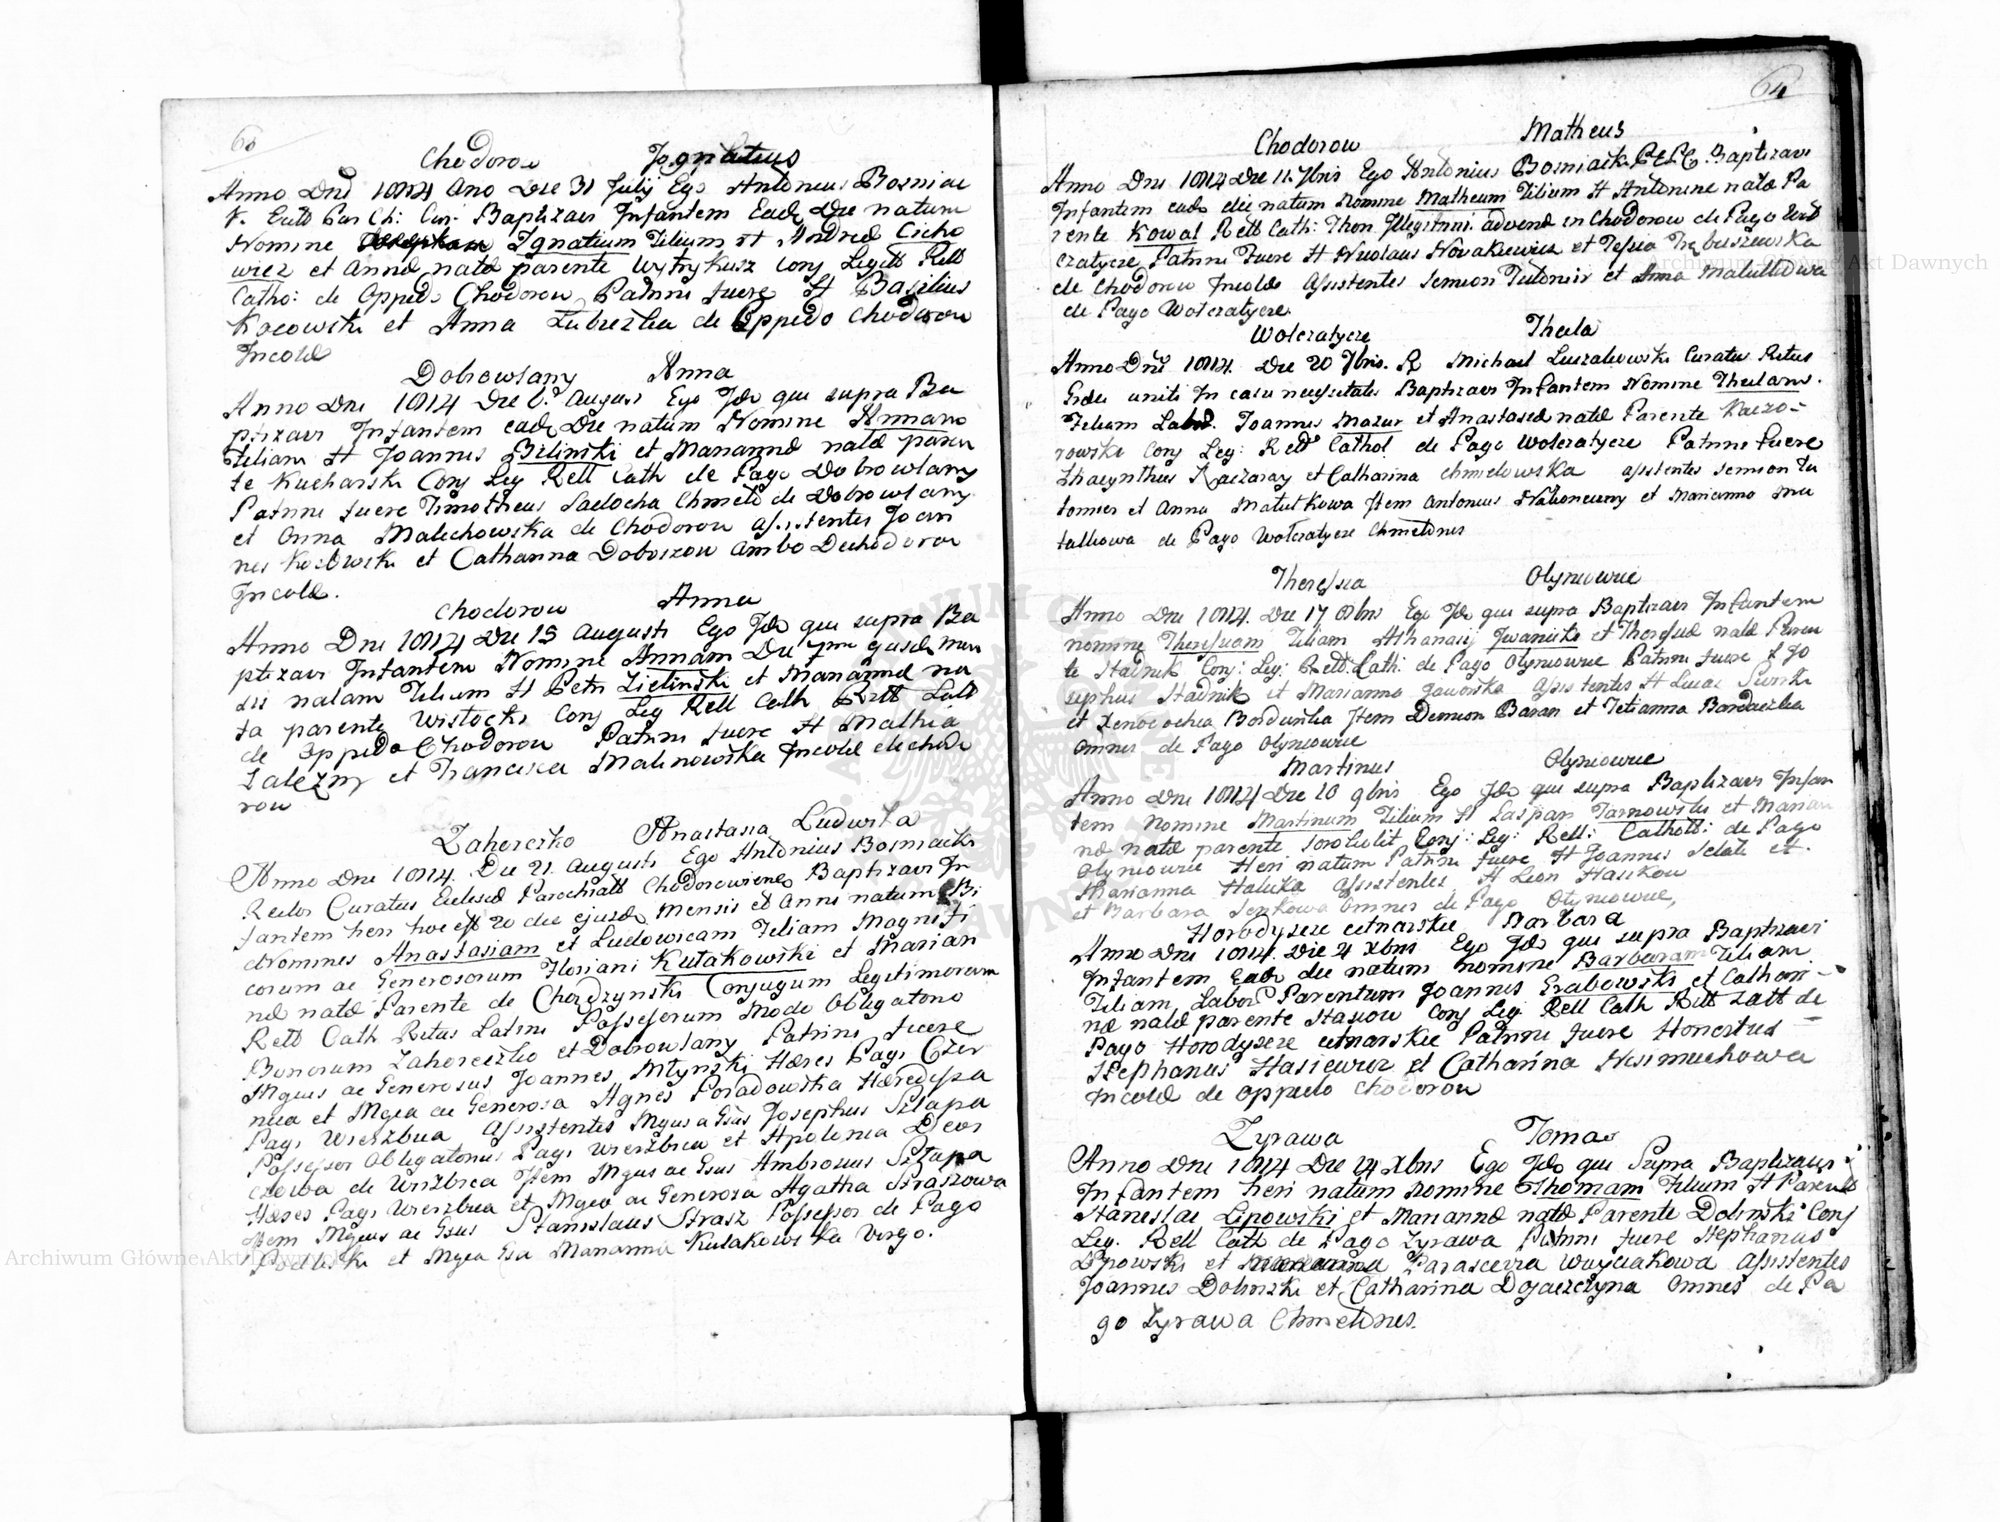 60
Chodorow Ignatius
Anno Dni 1814 Ano Die 31 Julij Ego Antonius Bosniac
k. Eccl Par Ch: Cur. Baptizavi Infantem Ead Die natum
Nomine Ignatium Filium H Andreæ Cicho
wicz et Annæ natæ parente Wytrykusz Conj Legitt Rell
Catho: de Oppido Chodorow Patrini fuere H Basilius
Kocowski et Anna Lubrezka de Oppido Chodorow
Incolæ
Dobrowlany Anna
Anno Dni 1814 Die 6. Augusti Ego Idē qui supra Ba
ptizavi Infantem eadē Die natum Nomine Annam
Filiam H Joannis Bilinski et Mariannæ natæ paren
te Kucharski Conj Leg Rell Cath de Pago Dobrowlany
Patrini fuere Timotheus Sadocha Chmeto de Dobrowlany
et Anna Malechowska de Chodorow Assistentes Joan
nes Kozlowski et Catharina Doboszow Ambo De Chodorow
Incolæ.
Chodorow Anna
Anno Dni 1814 Die 15 Augusti Ego Idē qui supra Ba
ptizavi Infantem Nomine Annam Die 7me ejusdē men
sis natam Filium H Petri Zielinski et Mariannæ na
ta parente Wistocki Conj Leg Rell Cath Ritt Latt
de Oppido Chodorow Patrini fuere H Mathia
Zalezny et Francisca Malinowska Incolæ de Chodo
row
Zahoreczko Anastasia Ludwika
Anno Dni 1814. Die 21. Augusti Ego Antonius Bosniacki
Rector Curatus Eclesiæ Parochialis Chodorowienes Baptizavi In
fantem heri hoc est 20 die ejusdē Mensis et Anni natum Bi
Nomines Anastasiam et Ludowicam Filiam Magnifi
corum ac Generosorum Floriani Kulakowski et Marian
næ natæ Parente de Chordzynski Conjugum Legitimorum
Rell Cath Ritus Latini Possessorum Modo Obligatorio
Bonorum Zahoreczko et Dobrowlany Patrini fuere
Mgnus ac Generosus Joannes Młynski Hæres Pagi Czer
nica et Mgea ac Generosa Agnes Poradowska Hæredissa
Pagi Wierzbica Assistentes Mgnus a Gsus Josephus Sztapa
Possessor Obligatorius Pagi Wierzbica et Apolonia Dwor
czowa de Wrizbica Item Mgnus ac Gsus Ambrosius Sztapa
Hæres Pagi Wierzbica et Mgea ac Generosa Agatha Straszowa
Item Mgnus ac Gsus Stanislaus Strasz Possessor de Pago
et Mgea Gsa Marianna Kulakowska Virgo.
64
Chodorow Matheus
Anno Dni 1814 Die 11. 7bris Ego Antonius Bosniack. Baptizavi
Infantem eadē die natum Nomine Matheum Filium H Antoninæ natæ Pa
rente Kowal Rell Cath: Thori Illegitimi advenæ in Chodorow de Pago Wol
czatycze Patrini Fuere H Nicolaus Nowakiewicz et Tessia Trębuszewska
de Chodorow Incolæ Assistentes Semion Tutonir et Anna Malutkowa
de Pago Wolczatycze
Wolczatycze Thecla
Anno Dni 1814. Die 20 7bris. R Michael Luczakowski Curatus Ritus
Græci uniti In casu necessitatis Baptizavi Infantem Nomine Theclam.
Filiam Labor. Joannis Mazur et Anastasiæ natæ Parente Kaczo-
rowski Conj Leg: Rell Cathol de Pago Wolczatycze Patrini fuere
Hiacynthus Kaczaray et Catharina Chmielowska assistentes Semion Tu
tonier et Anna Malutkowa Item Antonius Nakonieczny et Marianna Ma
lutkowa de Pago Wolczatycze Chmetones
Theressia Olyniowiec
Anno Dni 1814. Die 17 8bris Ego Idē qui supra Baptizavi Infantem
nomine Theressiam Filiam Athanasij Iwanicki et Theressiæ natæ Paren
te Stadnik Conj: Leg: Rell: Cath: de Pago Olyniowiec Patrini fuere H Jo
sephus Stadnik et Marianna Gawowska Assistentes H Lucas Siwski
et Xenocochia Bordunska Item Demion Baran et Tetianna Bandaczka
Omnes de Pago Olyniowiec
Martinus Olyniowiec
Anno Dni 1814 Die 10 9bris Ego Idē qui supra Baptizavi Infan
tem Nomine Martinum Filium H Caspari Tarnowski et Marian
næ natæ parente Sorokolit Conj: Leg: Rell: Catholl: de Pago
Olyniowiec Heri natum Patrini fuere H Joannes Selati et
Marianna Haluka Assistentes H Leon Hasikow
et Barbara Senkowa Omnes de Pago Olyniowiec,
Horodyszcze cetnarskie Barbara
Anno Dni 1814. Die 4 Xbris Ego Idē qui supra Baptizavi
Infantem Eadē die natum nomine Barbaram Filiam
Filiam Labor Parentum Joannis Grabowski et Cathari-
næ natæ parente Stasiow Conj Leg Rell Cath Ritt Latt de
Pago Horodyszcze cetnarskie Patrini fuere Honestus
Stephanus Stasiewicz et Catharina Nesimuchowa
Incolæ de oppido Chodorow
Zyrawa Tomas
Anno Dni 1814 Die 14 Xbris Ego Idē qui Supra Baptizavi
Infantem heri natum nomine Thomam Filium H Parent
Stanislai Lipowski et Mariannæ natæ Parente Dolinski Conj
Leg. Rell Cath de Pago Zyrawa Patrini fuere Stephanus
Lipowski et Parascevia Wuyciakowa Assistentes
Joannes Dolinski et Catharina Dojaczczyna Omnes de Pa
go Zyrawa Chmetones.
Archiwum Główne Akt Dawnych
Archiwum Główne Akt Dawnych